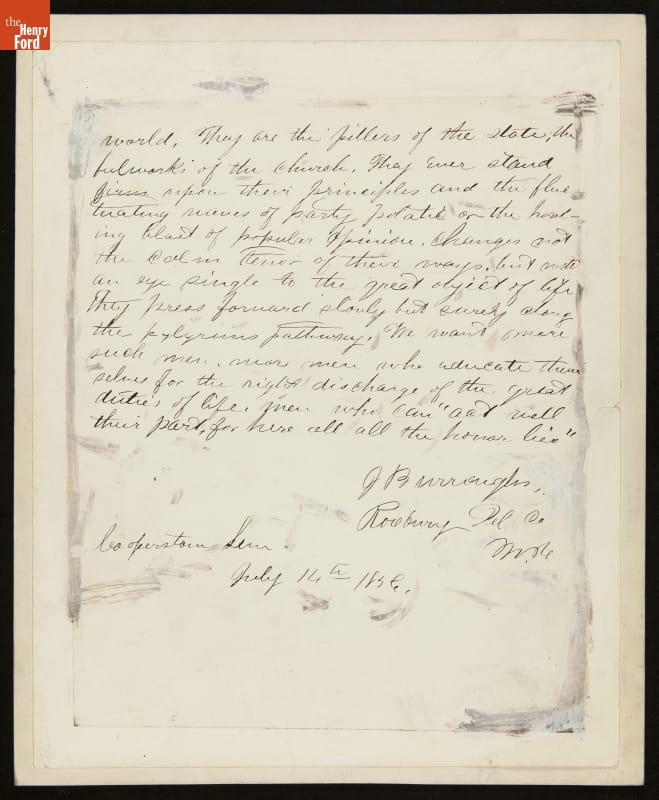 the
Henry
Ford
world. They are the pillers of the state, the
bulworks of the church. They ever stand
firm upon their principles and the fluc-
tuating waves of party Polatic or the howl-
ing blast of popular opinion, changes not
the calm tenor of their ways, but with
an eye single to the great object of life
They press forward slowly but surely along
the pylgrims pathway. We want more
such men, more men who educate them
selves for the right discharge of the great
duties of life, men who can "act well
their part, for here all all the honor lies"
J Burroughs,
Roxbury Del Co
N.Y.
Cooperstown Sem
July 14th 1856.